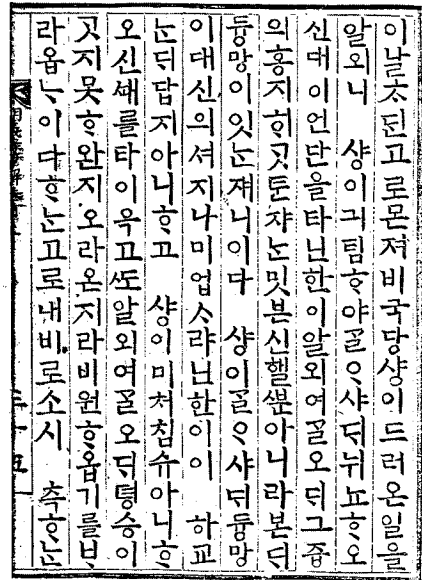 이날太뎐고로몬져비국당샹이드러온일을
알외니 샹이긔팀ᄒᆞ야ᄀᆞᆯᄋᆞ샤ᄃᆡ뉘뇨ᄒᆞ오
신대이언단을타닌한이알외여ᄀᆞᆯ오ᄃᆡ그즙
의홍지히ᄀᆞᆺᄐᆞᆫ쟈ᄂᆞᆫ밋븐신헬ᄲᅮᆫ아니라본ᄃᆡ
듕망이잇ᄂᆞᆫ재니이다 샹이ᄀᆞᆯᄋᆞ샤ᄃᆡ듕망
이대신의셔지나미업ᄉᆞ랴닌한이이 하교
ᄂᆞᆫᄃᆡ답지아니ᄒᆞ고 샹이미처침슈아니ᄒᆞ
오신ᄣᅢ를타이윽고ᄯᅩ알외여ᄀᆞᆯ오ᄃᆡ텽승이
ᄀᆞᆺ지못ᄒᆞ완지오라온지라비원ᄒᆞᄋᆞᆸ기를ᄇᆞ
라ᄋᆞᆸᄂᆞ이다ᄒᆞᄂᆞᆫ고로내비로소시 측ᄒᆞᄂᆞᆫ